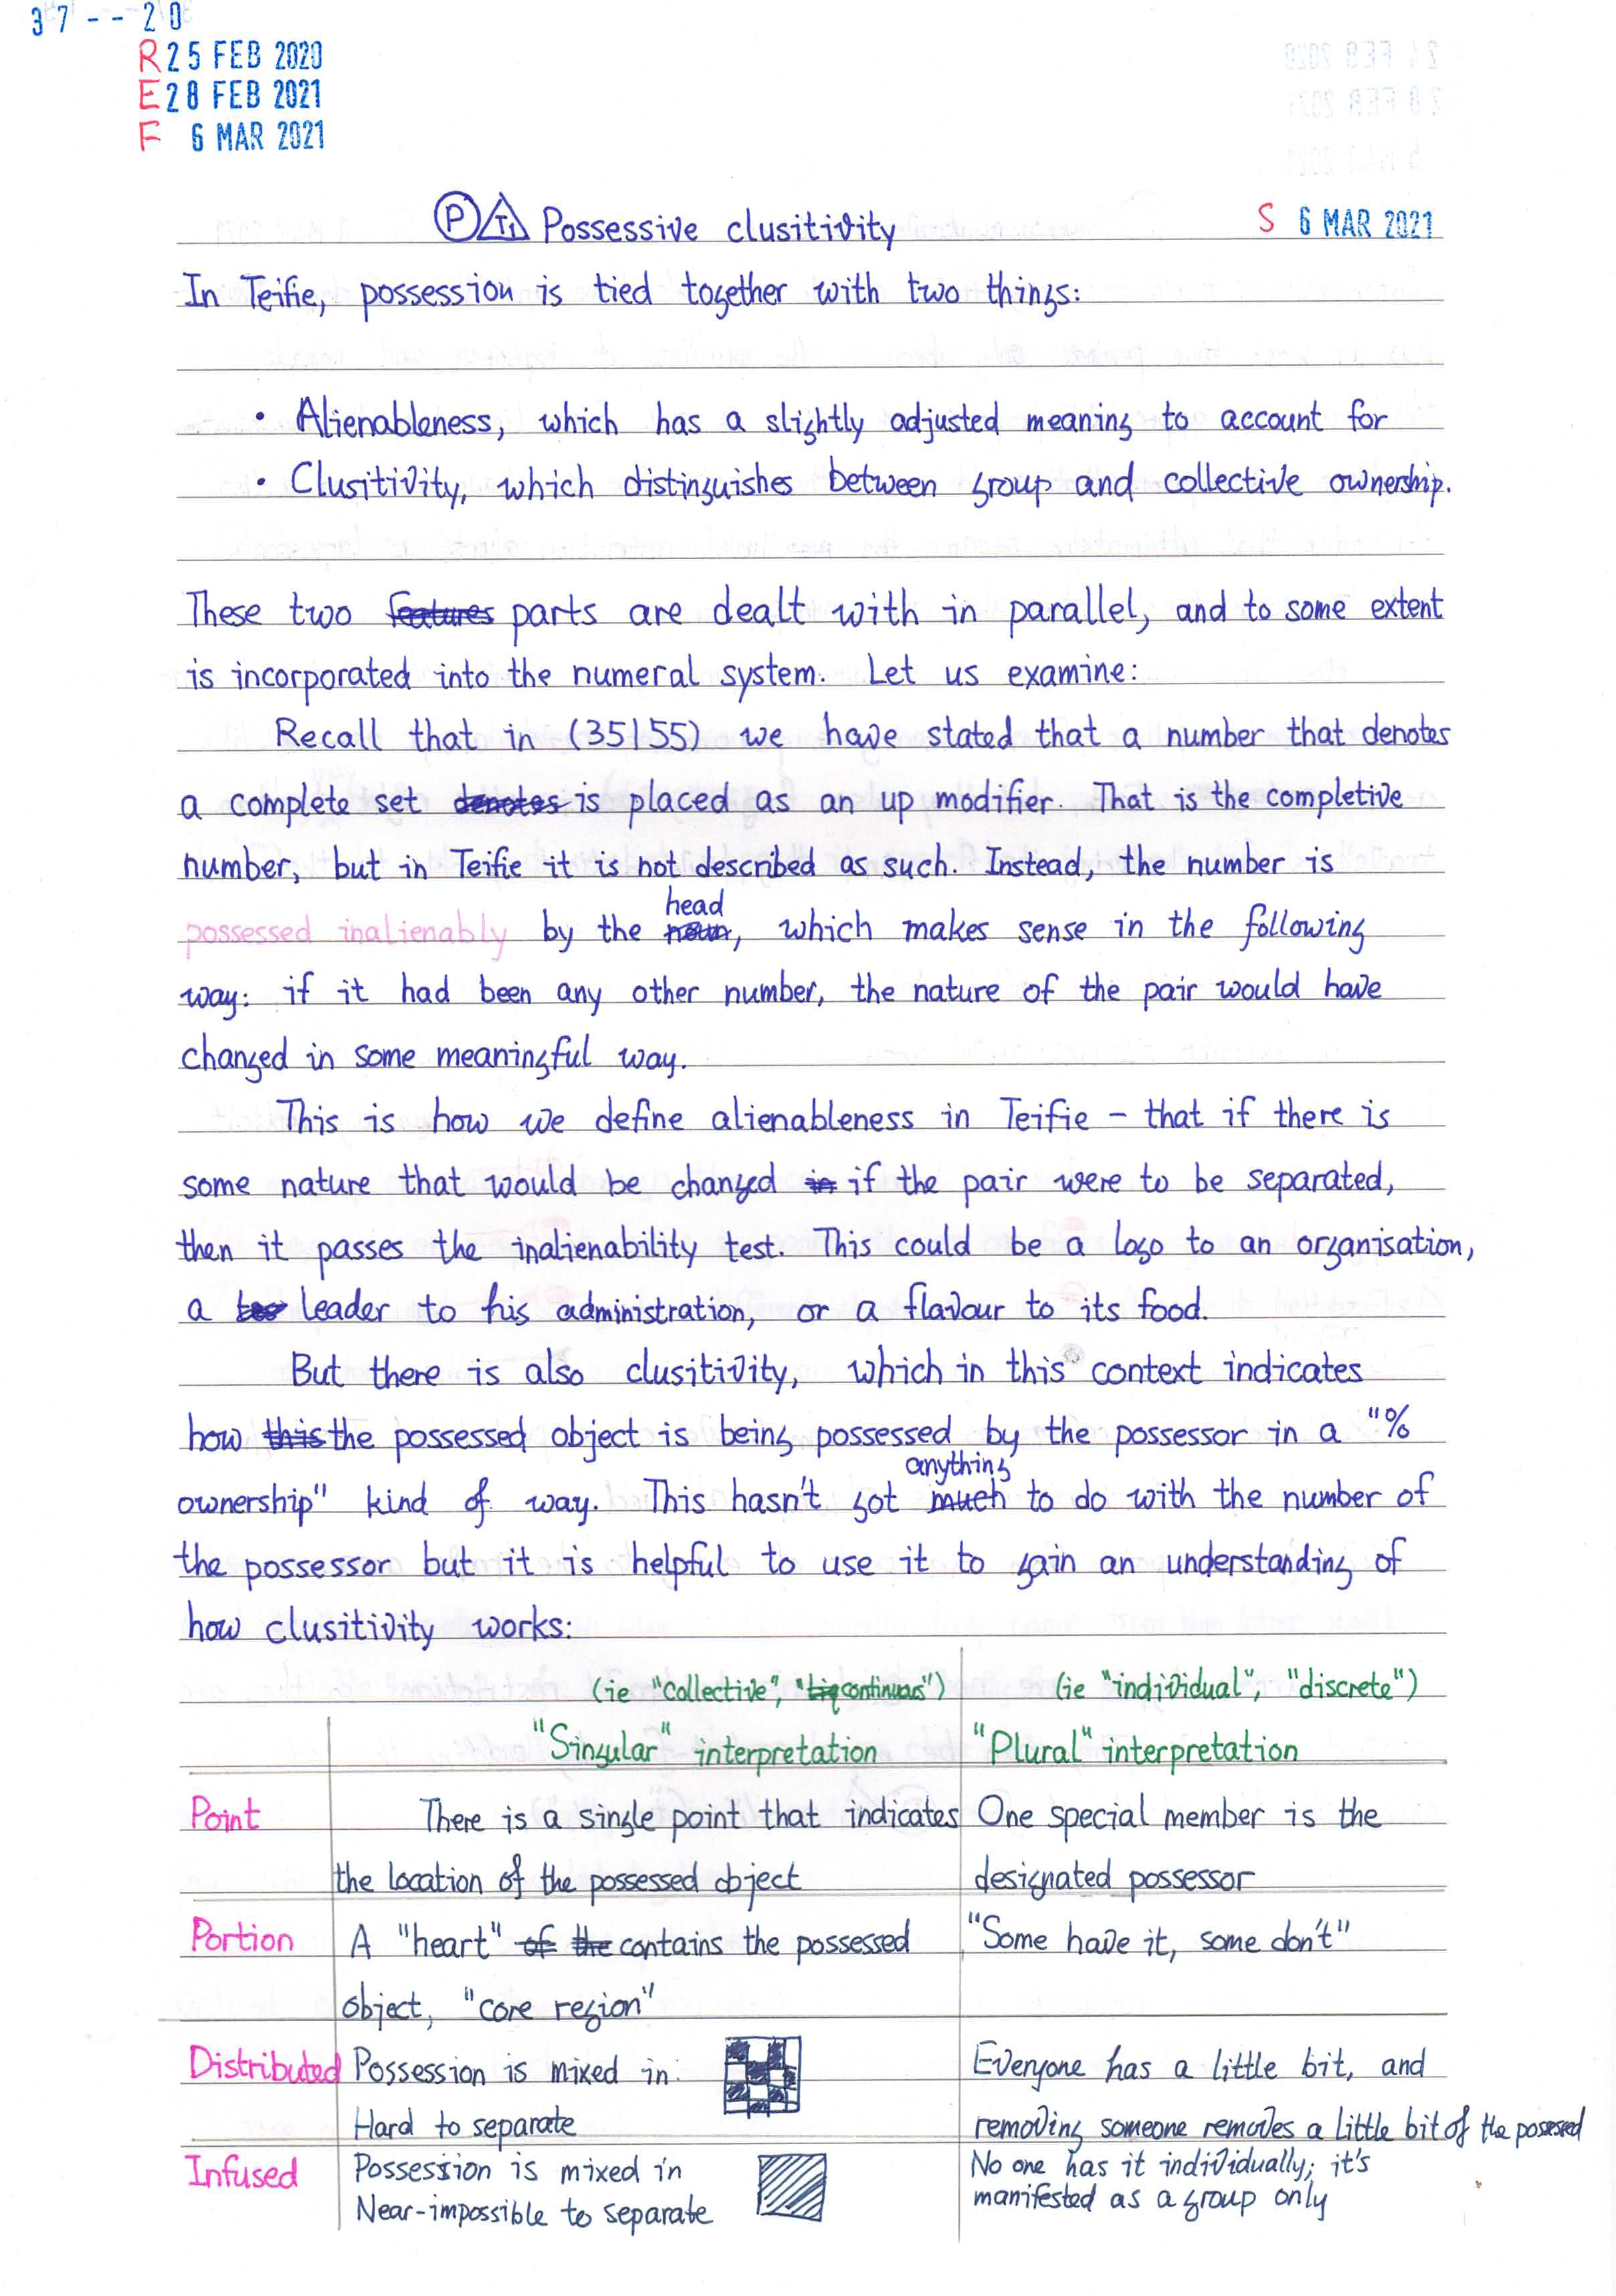 37--20
R 25 FEB 2020
E 28 FEB 2021
F 6 MAR 2021
P T1 Possessive clusitivity S 6 MAR 2021
In Teifie, possession is tied together with two things:
• Alienableness, which has a slightly adjusted meaning to account for
• Clusitivity, which distinguishes between group and collective ownership.
These two features parts are dealt with in parallel, and to some extent
is incorporated into the numeral system. Let us examine:
Recall that in (35155) we have stated that a number that denotes
a complete set denotes is placed as an up modifier. That is the completive
number, but in Teifie it is not described as such. Instead, the number is
head
possessed inalienably by the noun, which makes sense in the following
way: if it had been any other number, the nature of the pair would have
changed in some meaningful way.
This is how we define alienableness in Teifie – that if there is
some nature that would be changed in if the pair were to be separated,
then it passes the inalienability test. This could be a logo to an organisation,
a leader to his administration, or a flavour to its food.
But there is also clusitivity, which in this context indicates
how this the possessed object is being possessed by the possessor in a "%
anything
ownership" kind of way. This hasn't got much to do with the number of
the possessor but it is helpful to use it to gain an understanding of
how clusitivity works:
(ie "collective", "continuous") (ie "individual", "discrete")
"Singular" interpretation "Plural" interpretation
Point There is a single point that indicates One special member is the
the location of the possessed object designated possessor
Portion A "heart" of the contains the possessed "Some have it, some don't"
object, "core region"
Distributed Possession is mixed in. Everyone has a little bit, and
Hard to separate removing someone removes a little bit of the possesed
Infused Possession is mixed in No one has it individually; it's
Near-impossible to separate manifested as a group only